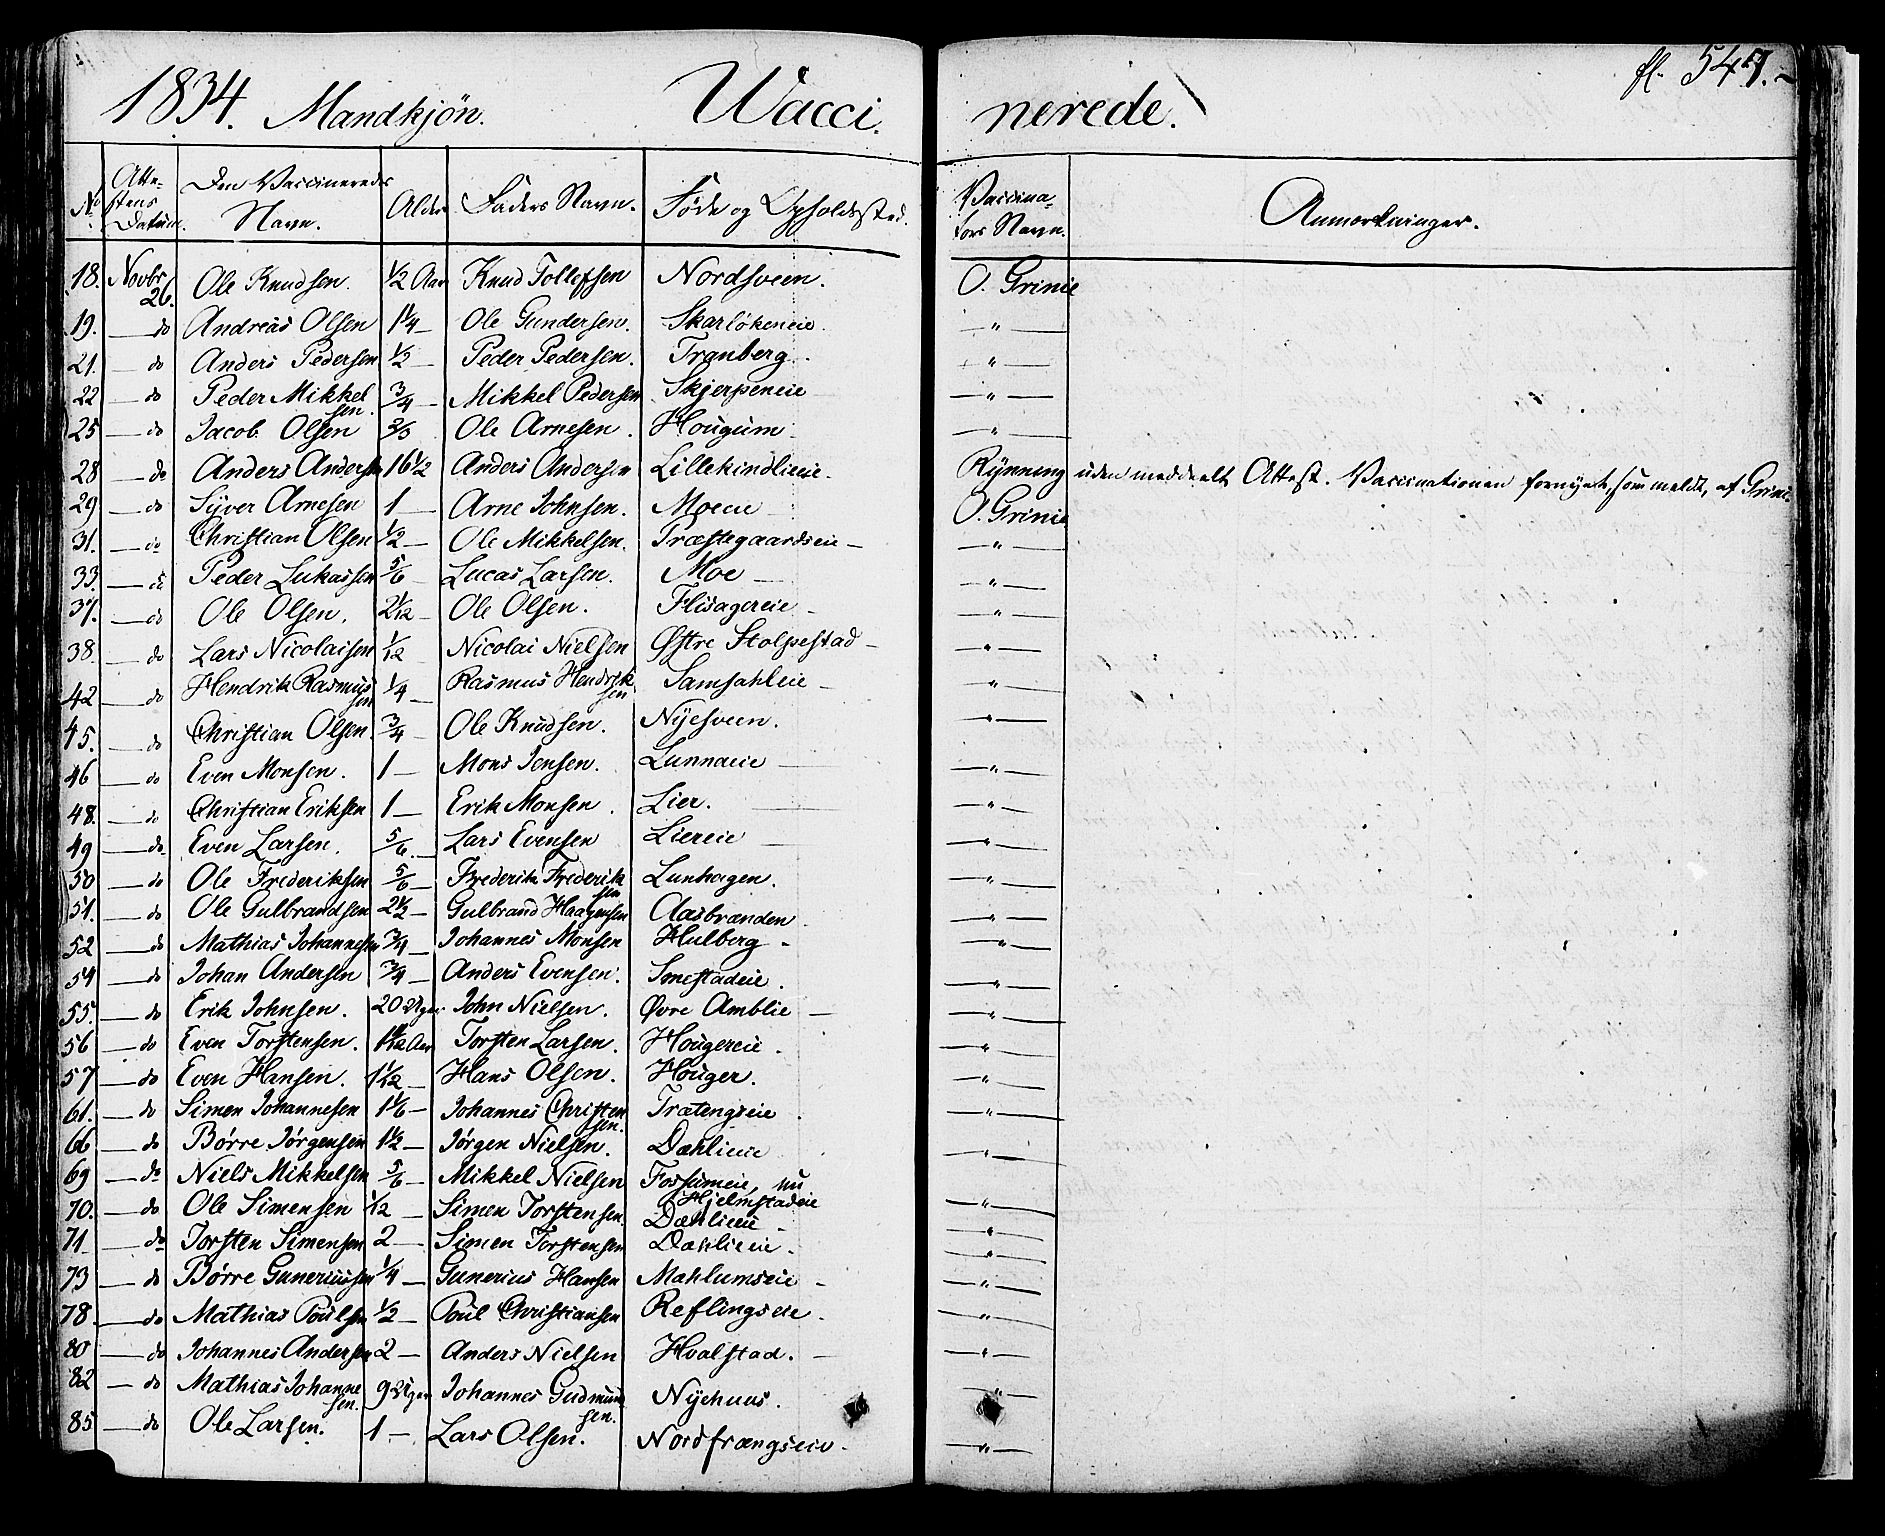 fl. 547.
1834. Mandkjön. Wacci nerede.
No Attestens Datum. Den Vaccineredes Navn. Alder Faders Navn. Føde og Opholdssted. Vaccinators Navn. Anmærkninger.
18. Novbr 26. Ole Knudsen. 1/2 Aar Knud Tollefsen Nordsveen. O. Grinie
19. — do Andreas Olsen 1 1/4 — Ole Gundersen. Skarlökeneie — " —
21. — do Anders Pedersen 1/2 — Peder Pedersen. Tranberg. — " —
22 — do Peder Mikkelsen. 3/4 — Mikkel Pedersen Skjerpeneie — " —
25 — do Jacob Olsen Ole Arnesen. Hougum — " —
28 — do Anders Andersen 16 1/2 Anders Andersen Lillekindlieie. Rÿnning uden meddeelt Attest. Vaccinationen fornyet, som meldt, af Grinie
29 — do Syver Arnesen 1 — Arne Johnsen. Moeeie — O. Grinie
31. — do Christian Olsen 1/2 — Ole Mikkelsen. Præstegaardseie — — " —
33. — do Peder Lukassen 5/6 — Lucas Larsen. Moe — — " —
37. — do Ole Olsen. 2 1/12 — Ole Olsen. Flisagereie — — " —
38. — do Lars Nicolaisen 1/12 Nicolai Nielsen Østre Stolpestad — — " —
42 — do Hendrik Rasmussen 1/4 — Rasmus Hendriksen Samsahleie — — " —
45. — do Christian Olsen. 3/4 — Ole Knudsen. Nÿesveen. — " —
46 — do Even Monsen. 1 — Mons Jensen. Lunnaeie — — " —
48. — do Christian Eriksen 1 — Erik Monsen. Lier. — — " —
49 — do Even Larsen. 5/6. — Lars Evensen Liereie — — " —
50 — do Ole Frederiksen 5/6 — Frederik Frederiksen Lunhagen. — " —
51. — do Ole Gulbrandsen 2 1/2 — Gulbrand Haagensen Aasbrænden — " —
52 — do Mathias Johannesen 3/4 — Johannes Monsen Hulberg — — " —
54 — do Johan Andersen 3/4 — Anders Evensen. Smestadeie. — " —
55. — do Erik Johnsen. 20 Uger John Nielsen. Øvre Amblie — — " —
56 — do Even Torstensen. Aar Torsten Larsen. Hougereie. — " —
57 — do Even Hansen. 1 1/12 — Hans Olsen. Houger. — " —
61. — do Simen Johannesen 1 1/6 — Johannes Christensen. Trætengseie. — " —
66 — do Børre Jørgensen 1 1/2 — Jørgen Nielsen. Dæhlieie — " —
69 — do Niels Mikkelsen 5/6 — Mikkel Nielsen Fossumeie, nu Hjelmstadeie — " —
70. — do Ole Simensen 1/12 — Simen Torstensen. Dæhlieie — — " —
71 — do Torsten Simensen 2 — Simen Torstensen Dæhlieie. — " —
73 — do Børre Guneriussen 1/4 — Gunerius Hansen Mahlumseie — — " —
78. — do Mathias Poulsen 1/2 — Poul Christiansen Reflingseie. — " —
80 — do Johannes Andersen 2 — Anders Nielsen Hvalstad. — — " —
82 — do Mathias Johannesen. 9 Uger Johannes Gudmundsen. Nyehuus. — " —
85 — do Ole Larsen. 1 — Lars Olsen. Nordfrængseie. — " —